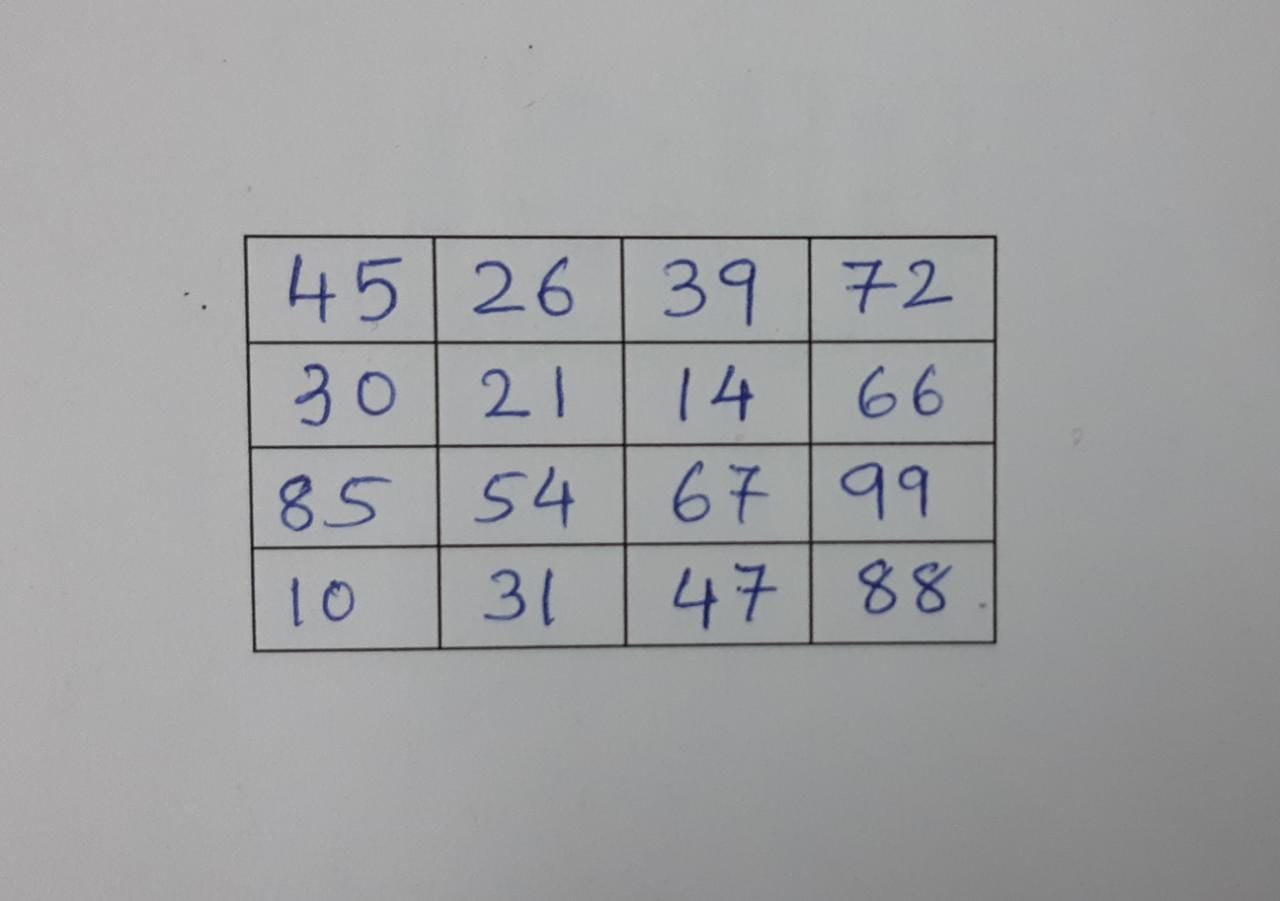 45 26 39 72
30 21 14 66
85 54 67 99
10 31 47 88